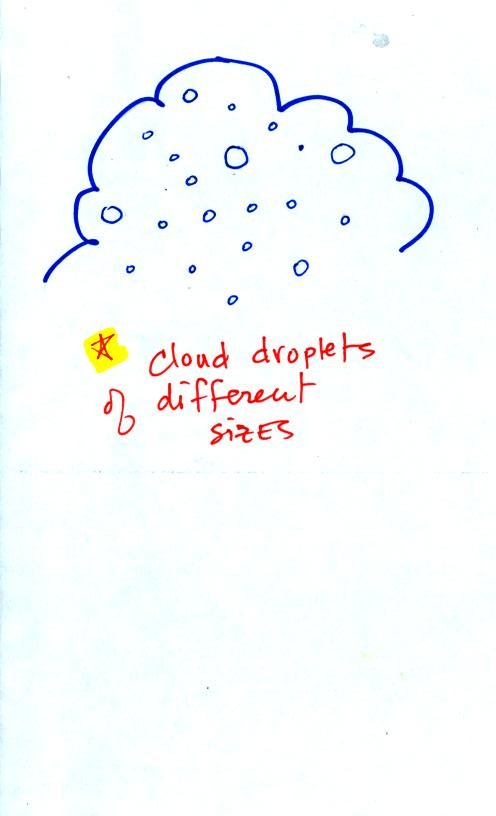 cloud droplets
of different
SIZES